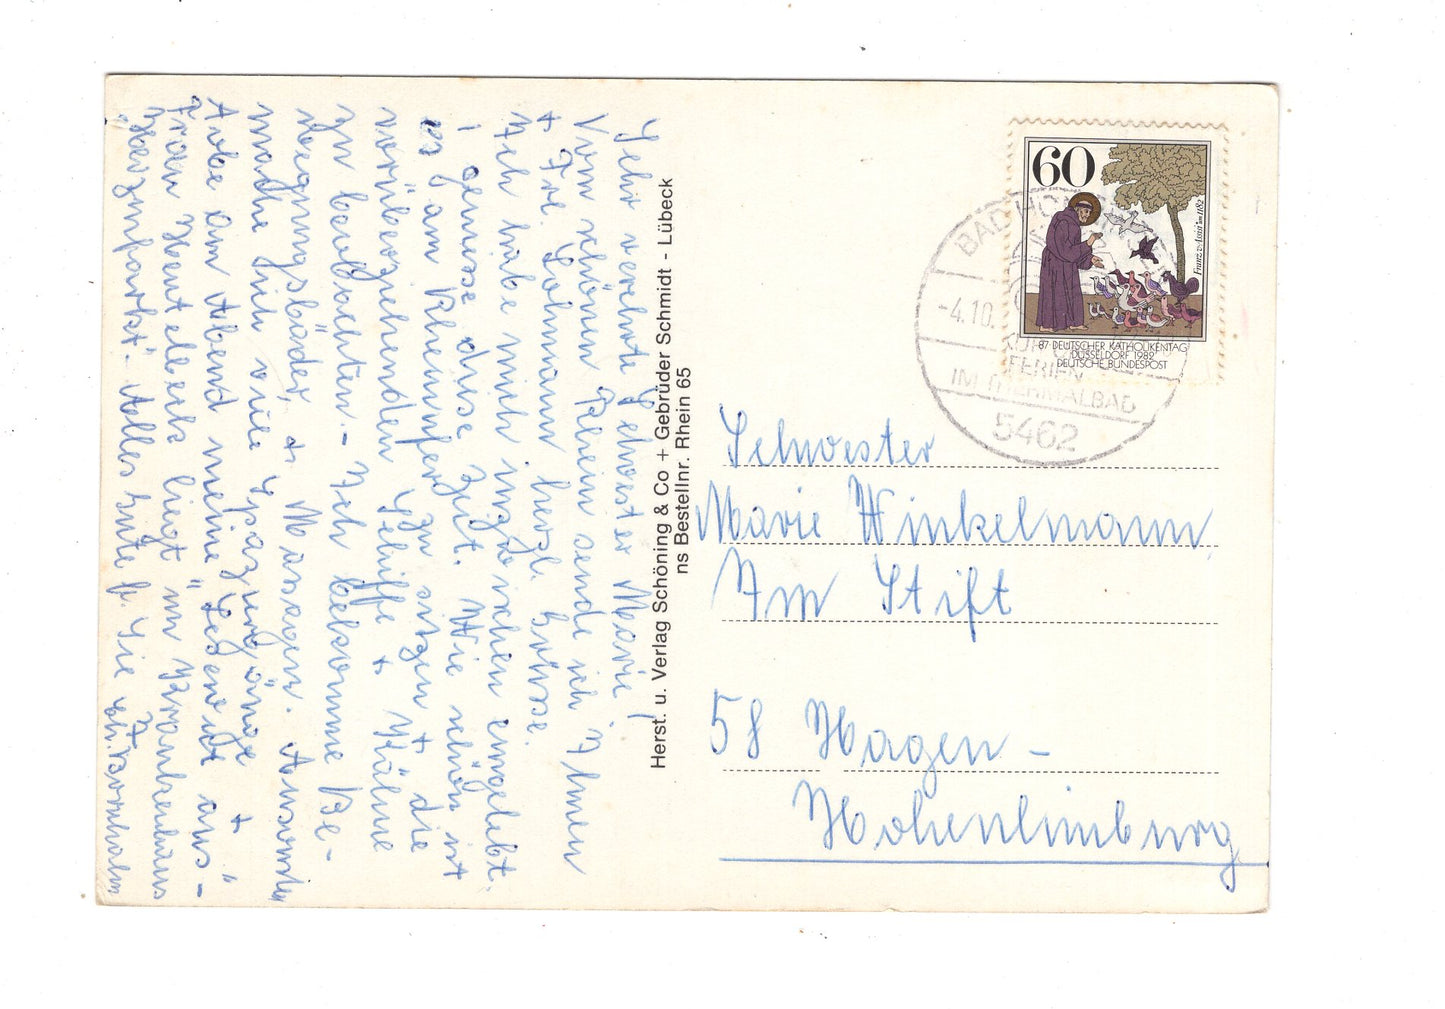 Sehr verehrte Schwester Marie!
Vom schönen Rhein sende ich Ihnen
+ Frl. Lohmann herzl. Grüsse.
Ich habe mich inzwischen eingelebt
+ geniesse diese Zeit. Wie schön ist
es am Rheinufer zu sitzen + die
vorüberziehenden Schiffe + Kähne
zu beobachten.- Ich bekomme Be-
wegungsbäder, + Massagen. Ansonsten
mache ich viele Spaziergänge +
am Abend meine
Frau liegt im Krankenhaus
"Herzinfarkt". Alles Gute f. Sie
Herst. u. Verlag Schöning & Co + Gebrüder Schmidt - Lübeck
ns Bestellnr. Rhein 65
60
Franz v. Assisi um 1182
87. DEUTSCHER KATHOLIKENTAG
DÜSSELDORF 1982
DEUTSCHE BUNDESPOST
BAD HÖ
-4.10.
FERIEN
IM THERMALBAD
5462
Schwester
Marie Winkelmann
Im Stift
58 Hagen -
Hohenlimburg